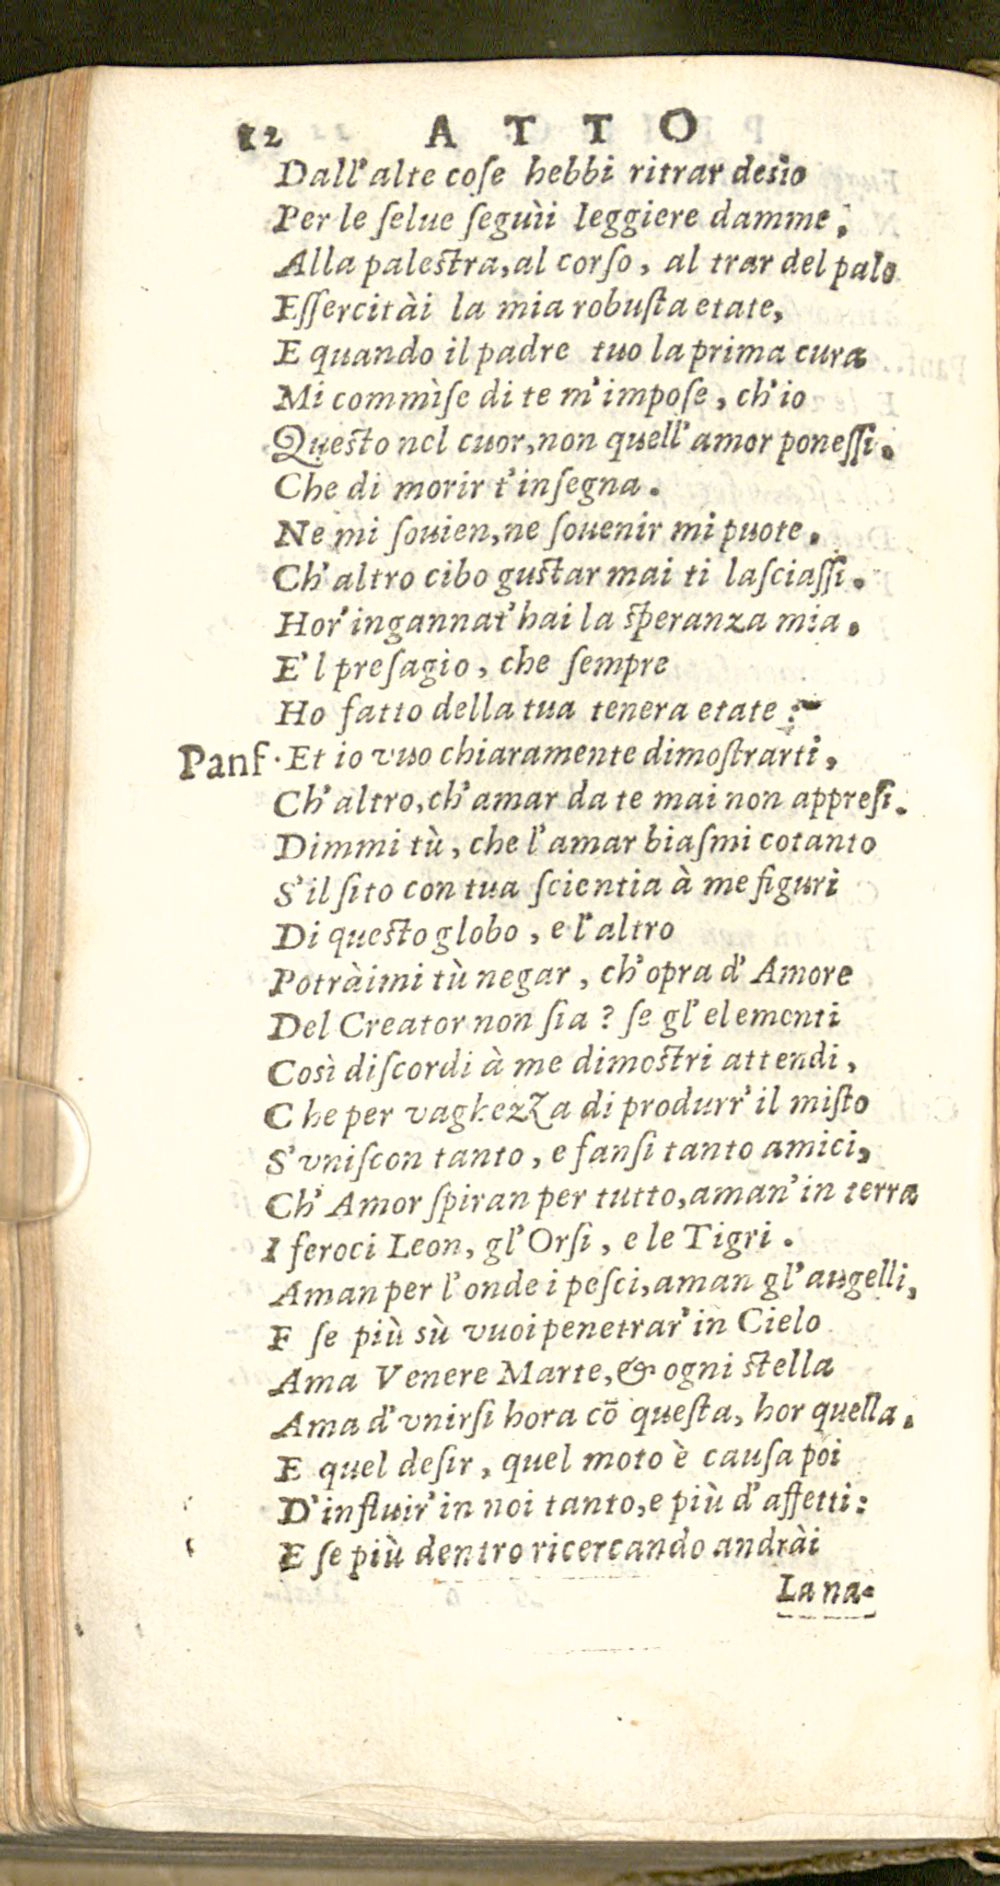 12 ATTO
Dall'alte coſe hebbi ritrar desìo
Per le ſelue ſeguìi leggiere damme;
Alla paleſtra, al corſo, al trar del palo
Eſſercitài la mia robuſta etate,
E quando il padre tuo la prima cura
Mi commìſe di te m'impoſe, ch'io
Queſto nel cuor, non quell'amor poneſſi.
Che di morir t'inſegna.
Ne mi ſouien, ne ſouenir mi puote,
Ch'altro cibo guſtar mai ti laſciaſſi.
Hor'ingannat'hai la ſperanza mia.
E'l preſagio, che ſempre
Ho fatto della tua tenera etate:
Panf. Et io vuo chiaramente dimoſtrarti,
Ch'altro, ch'amar da te mai non appreſi.
Dimmi tù, che l'amar biaſmi cotanto
S'il ſito con tua ſcientia à me figuri
Di queſto globo, e l'altro
Potràimi tù negar, ch'opra d'Amore
Del Creator non ſia? ſe gl'elementi
Così diſcordi à me dimoſtri attendi,
Che per vaghezza di produrr'il miſto
S'vniſcon tanto, e fanſi tanto amici,
Ch'Amor ſpiran per tutto, aman'in terra
I feroci Leon, gl'Orſi, e le Tigri.
Aman per l'onde i peſci, aman gl'augelli,
E ſe più sù vuoi penetrar'in Cielo
Ama Venere Marte, & ogni ſtella
Ama d'vnirſi hora cõ queſta, hor quella.
E quel deſir, quel moto è cauſa poi
D'influir'in noi tanto, e più d'affetti:
E ſe più dentro ricercando andrài
La na-